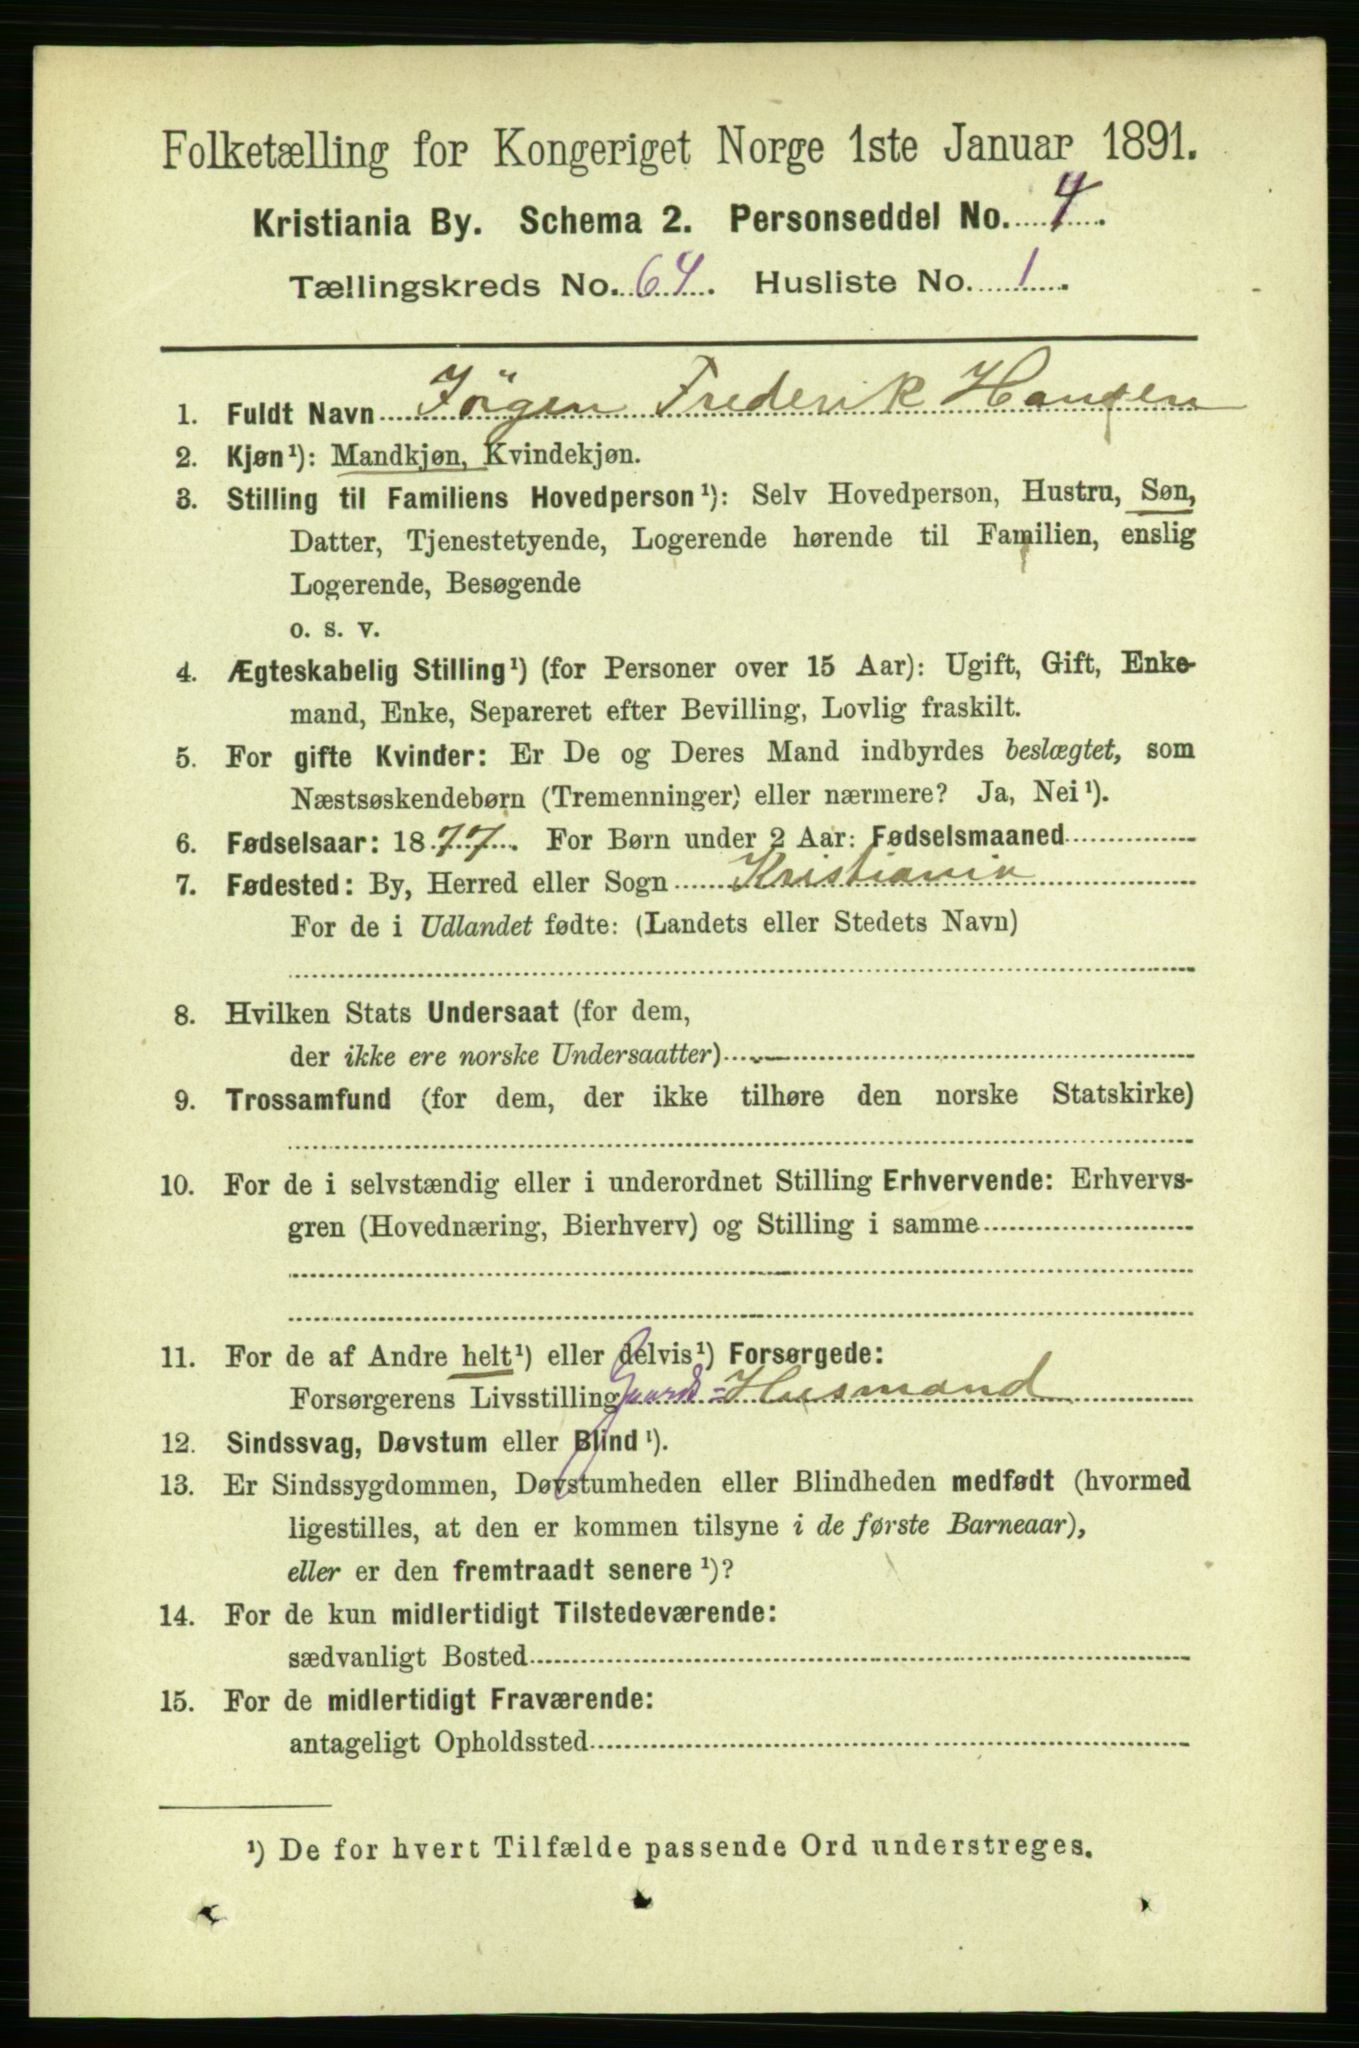 Folketælling for Kongeriget Norge 1ste Januar 1891.
Kristiania By. Schema 2. Personseddel No. 4.
Tællingskreds No. 64. Husliste No. 1.
1. Fuldt Navn Jörgen Frederik Hansen
2. Kjøn¹): Mandkjøn, Kvindekjøn.
3. Stilling til Familiens Hovedperson¹): Selv Hovedperson, Hustru, Søn,
Datter, Tjenestetyende, Logerende hørende til Familien, enslig
Logerende, Besøgende
o. s. v.
4. Ægteskabelig Stilling¹) (for Personer over 15 Aar): Ugift, Gift, Enke-
mand, Enke, Separeret efter Bevilling, Lovlig fraskilt.
5. For gifte Kvinder: Er De og Deres Mand indbyrdes beslægtet, som
Næstsøskendebørn (Tremenninger) eller nærmere? Ja, Nei¹).
6. Fødselsaar: 1877. For Børn under 2 Aar: Fødselsmaaned
7. Fødested: By, Herred eller Sogn Kristiania
For de i Udlandet fødte: (Landets eller Stedets Navn)
8. Hvilken Stats Undersaat (for dem,
der ikke ere norske Undersaatter)
9. Trossamfund (for dem, der ikke tilhøre den norske Statskirke)
10. For de i selvstændig eller i underordnet Stilling Erhvervende: Erhvervs-
gren (Hovednæring, Bierhverv) og Stilling i samme
11. For de af Andre helt¹) eller delvis¹) Forsørgede:
Forsørgerens Livsstilling Gaards=Husmand
12. Sindssvag, Døvstum eller Blind¹).
13. Er Sindssygdommen, Døvstumheden eller Blindheden medfødt (hvormed
ligestilles, at den er kommen tilsyne i de første Barneaar),
eller er den fremtraadt senere¹)?
14. For de kun midlertidigt Tilstedeværende:
sædvanligt Bosted
15. For de midlertidigt Fraværende:
antageligt Opholdssted
¹) De for hvert Tilfælde passende Ord understreges.